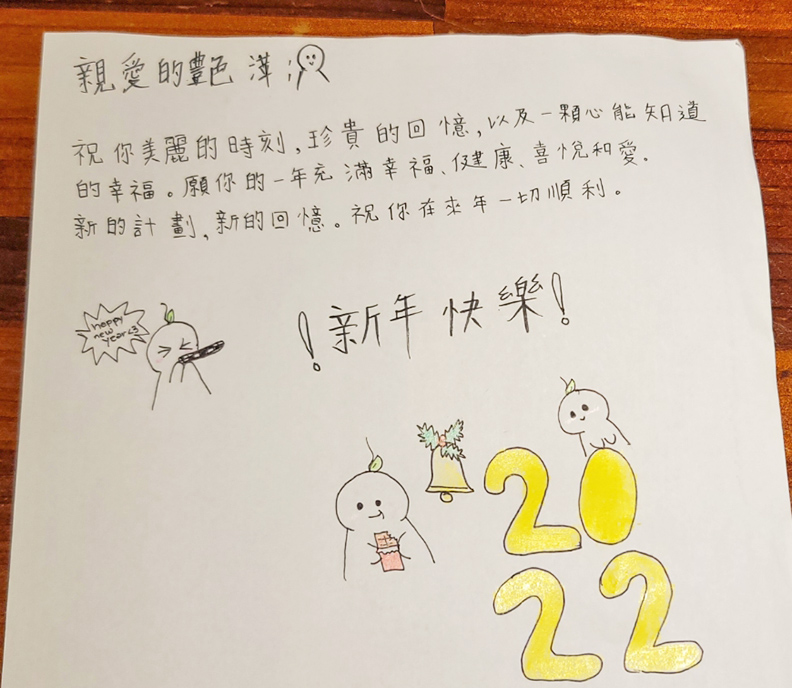 親愛的艷萍:
祝你美麗的時刻,珍貴的回憶,以及一顆心能知道
的幸福。願你的一年充滿幸福、健康、喜悅和愛.
新的計劃,新的回憶。祝你在來年一切順利。
happy
new
year<3
!新年快樂!
20
22